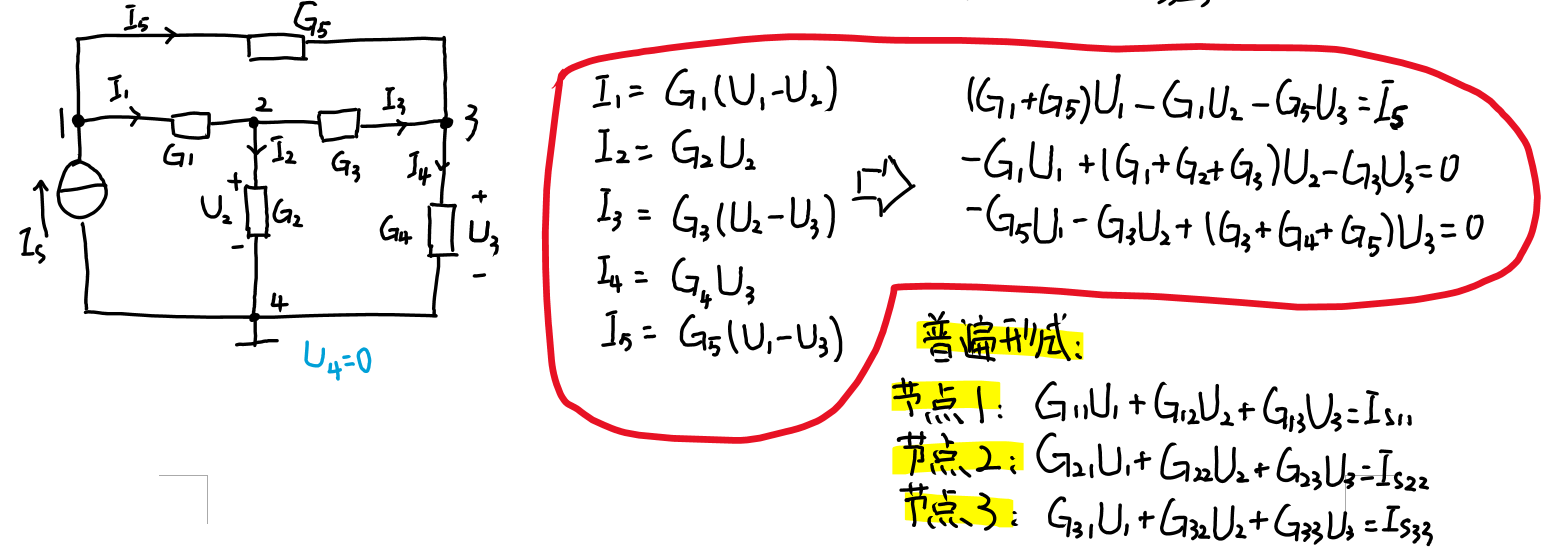 I₅ G₅
I₁ 2 I₃
1 3
G₁ I₂ G₃ I₄
+ +
U₂ G₂ G₄ U₃
- -
Is
4
U₄=0
I₁ = G₁(U₁-U₂)
I₂ = G₂U₂
I₃ = G₃(U₂-U₃)
I₄ = G₄U₃
I₅ = G₅(U₁-U₃)
(G₁+G₅)U₁-G₁U₂-G₅U₃=I₅
-G₁U₁+(G₁+G₂+G₃)U₂-G₃U₃=0
-G₅U₁-G₃U₂+(G₃+G₄+G₅)U₃=0
普遍形式:
节点1: G₁₁U₁+G₁₂U₂+G₁₃U₃=Is₁₁
节点2: G₂₁U₁+G₂₂U₂+G₂₃U₃=Is₂₂
节点3: G₃₁U₁+G₃₂U₂+G₃₃U₃=Is₃₃